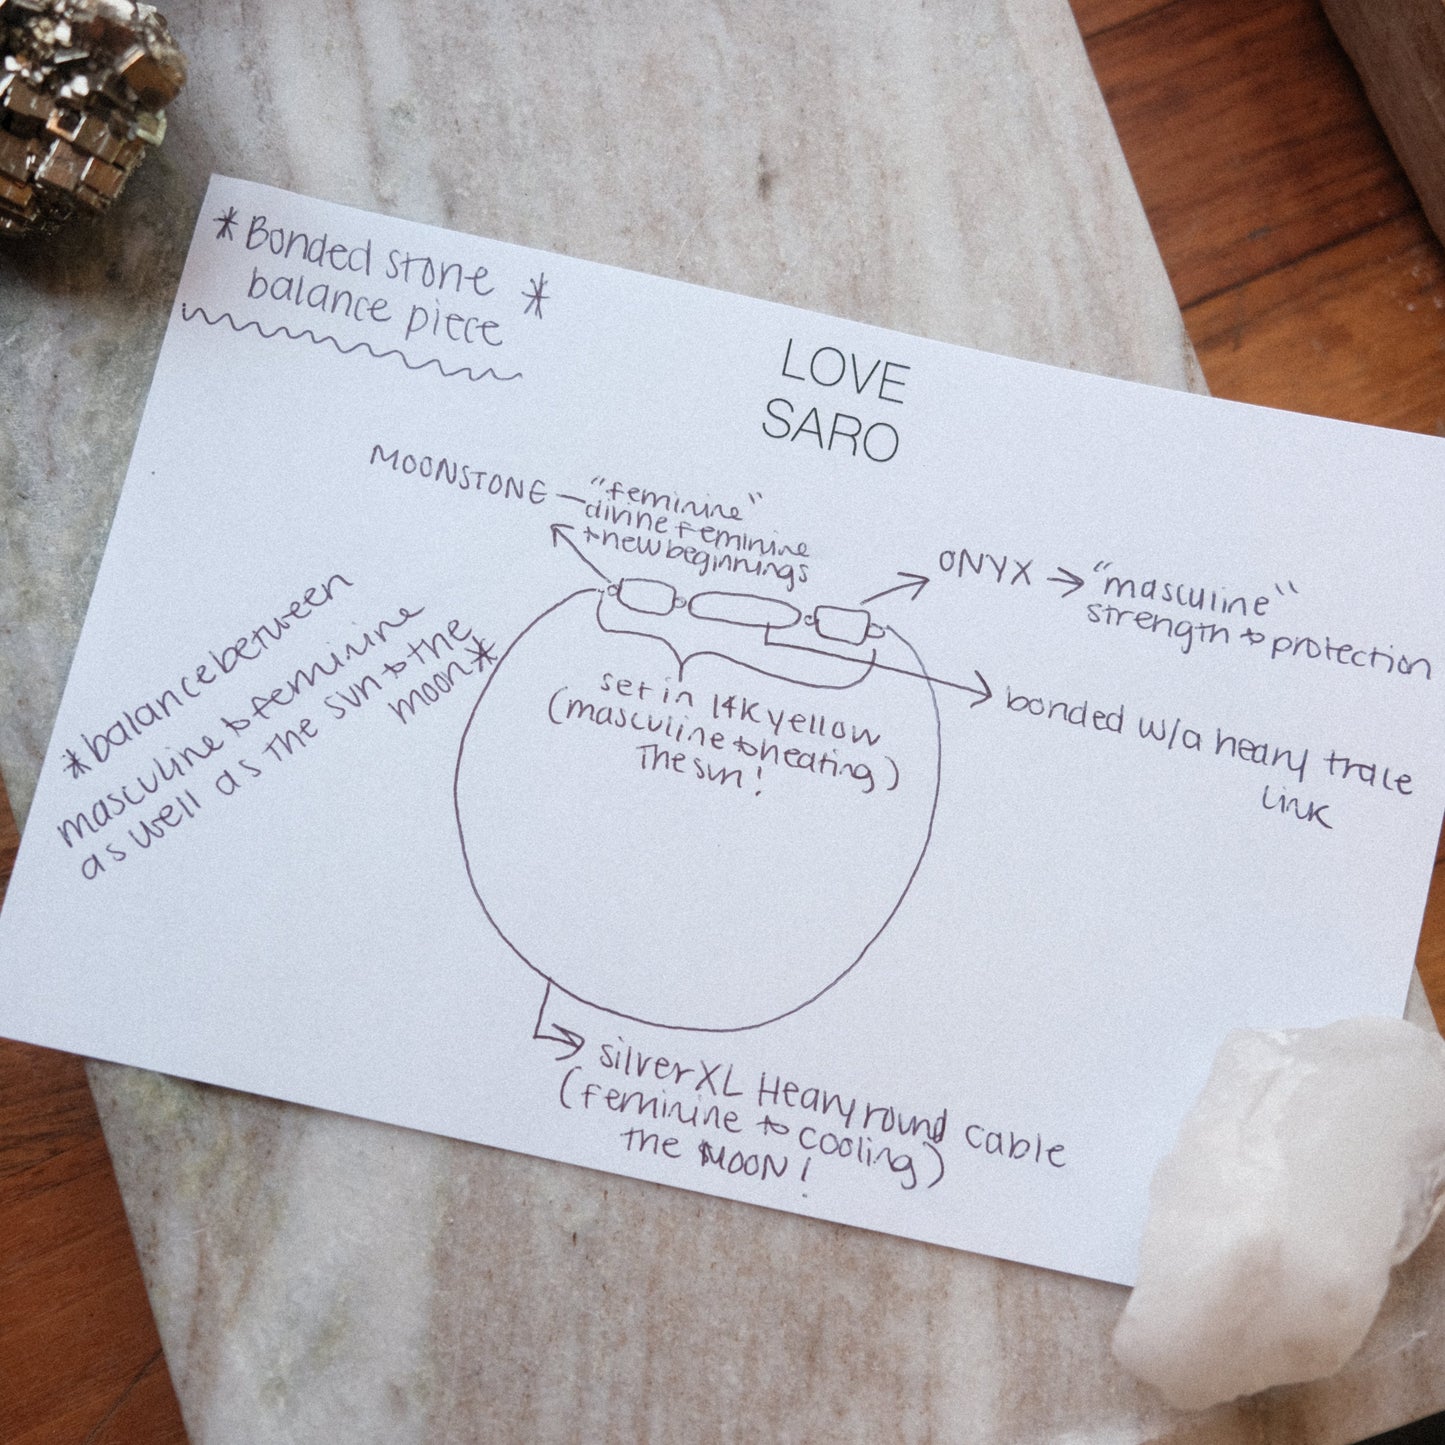 *Bonded stone *
balance piece
LOVE
SARO
MOONSTONE – "feminine"
divine feminine
& new beginnings
ONYX → "masculine"
strength & protection
*balance between
masculine & feminine
as well as the sun & the
moon*
set in 14K yellow
(masculine & heating)
The sun!
bonded w/a heavy trace
link
silver XL Heavy round cable
(feminine & cooling)
the MOON!